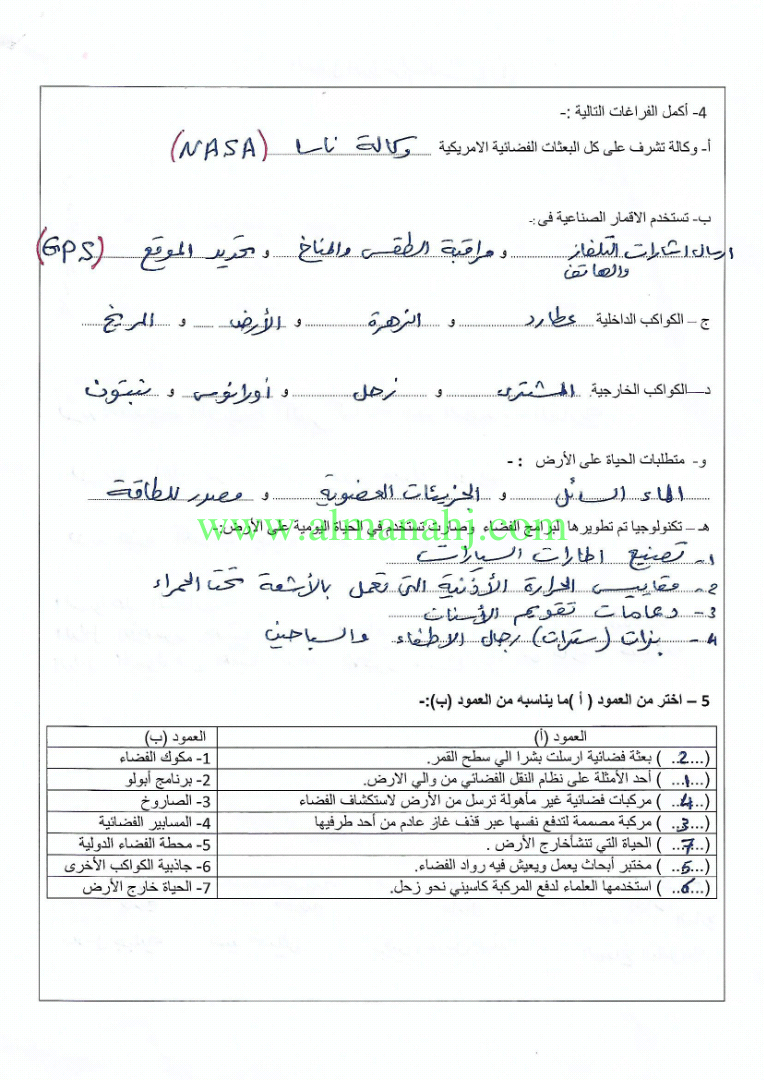 4- أكمل الفراغات التالية :-
أ- وكالة تشرف على كل البعثات الفضائية الامريكية وكالة ناسا (NASA)
ب- تستخدم الاقمار الصناعية فى :-
ارسال اشارات التلفاز والهاتف و مراقبة الطقس والمناخ و تحديد الموقع (GPS)
ج – الكواكب الداخلية عطارد و الزهرة و الأرض و المريخ
د- الكواكب الخارجية المشترى و زحل و أورانوس و نبتون
و- متطلبات الحياة على الأرض :-
الماء السائل و الجزيئات العضوية و مصدر للطاقة
www.almanahj.com
هـ – تكنولوجيا تم تطويرها لبرامج الفضاء وصارت تستخدم في الحياة اليومية على الأرض:-
1- تصنيع اطارات السيارات
2- مقاييس الحرارة الأذنية التى تعمل بالأشعة تحت الحمراء
3- دعامات تقويم الأسنان
4- بزات (سترات) رجال الاطفاء والسباحين
5 – اختر من العمود ( أ )ما يناسبه من العمود (ب):-
العمود (أ) العمود (ب)
(...2..) بعثة فضائية ارسلت بشرا الي سطح القمر. 1- مكوك الفضاء
(...1..) أحد الأمثلة على نظام النقل الفضائي من والي الارض. 2- برنامج أبولو
(..4..) مركبات فضائية غير مأهولة ترسل من الأرض لاستكشاف الفضاء 3- الصاروخ
(...3..) مركبة مصممة لتدفع نفسها عبر قذف غاز عادم من أحد طرفيها 4- المسابير الفضائية
(..7..) الحياة التي تنشأخارج الأرض . 5- محطة الفضاء الدولية
(...5..) مختبر أبحاث يعمل ويعيش فيه رواد الفضاء. 6- جاذبية الكواكب الأخرى
(...6..) استخدمها العلماء لدفع المركبة كاسيني نحو زحل. 7- الحياة خارج الأرض